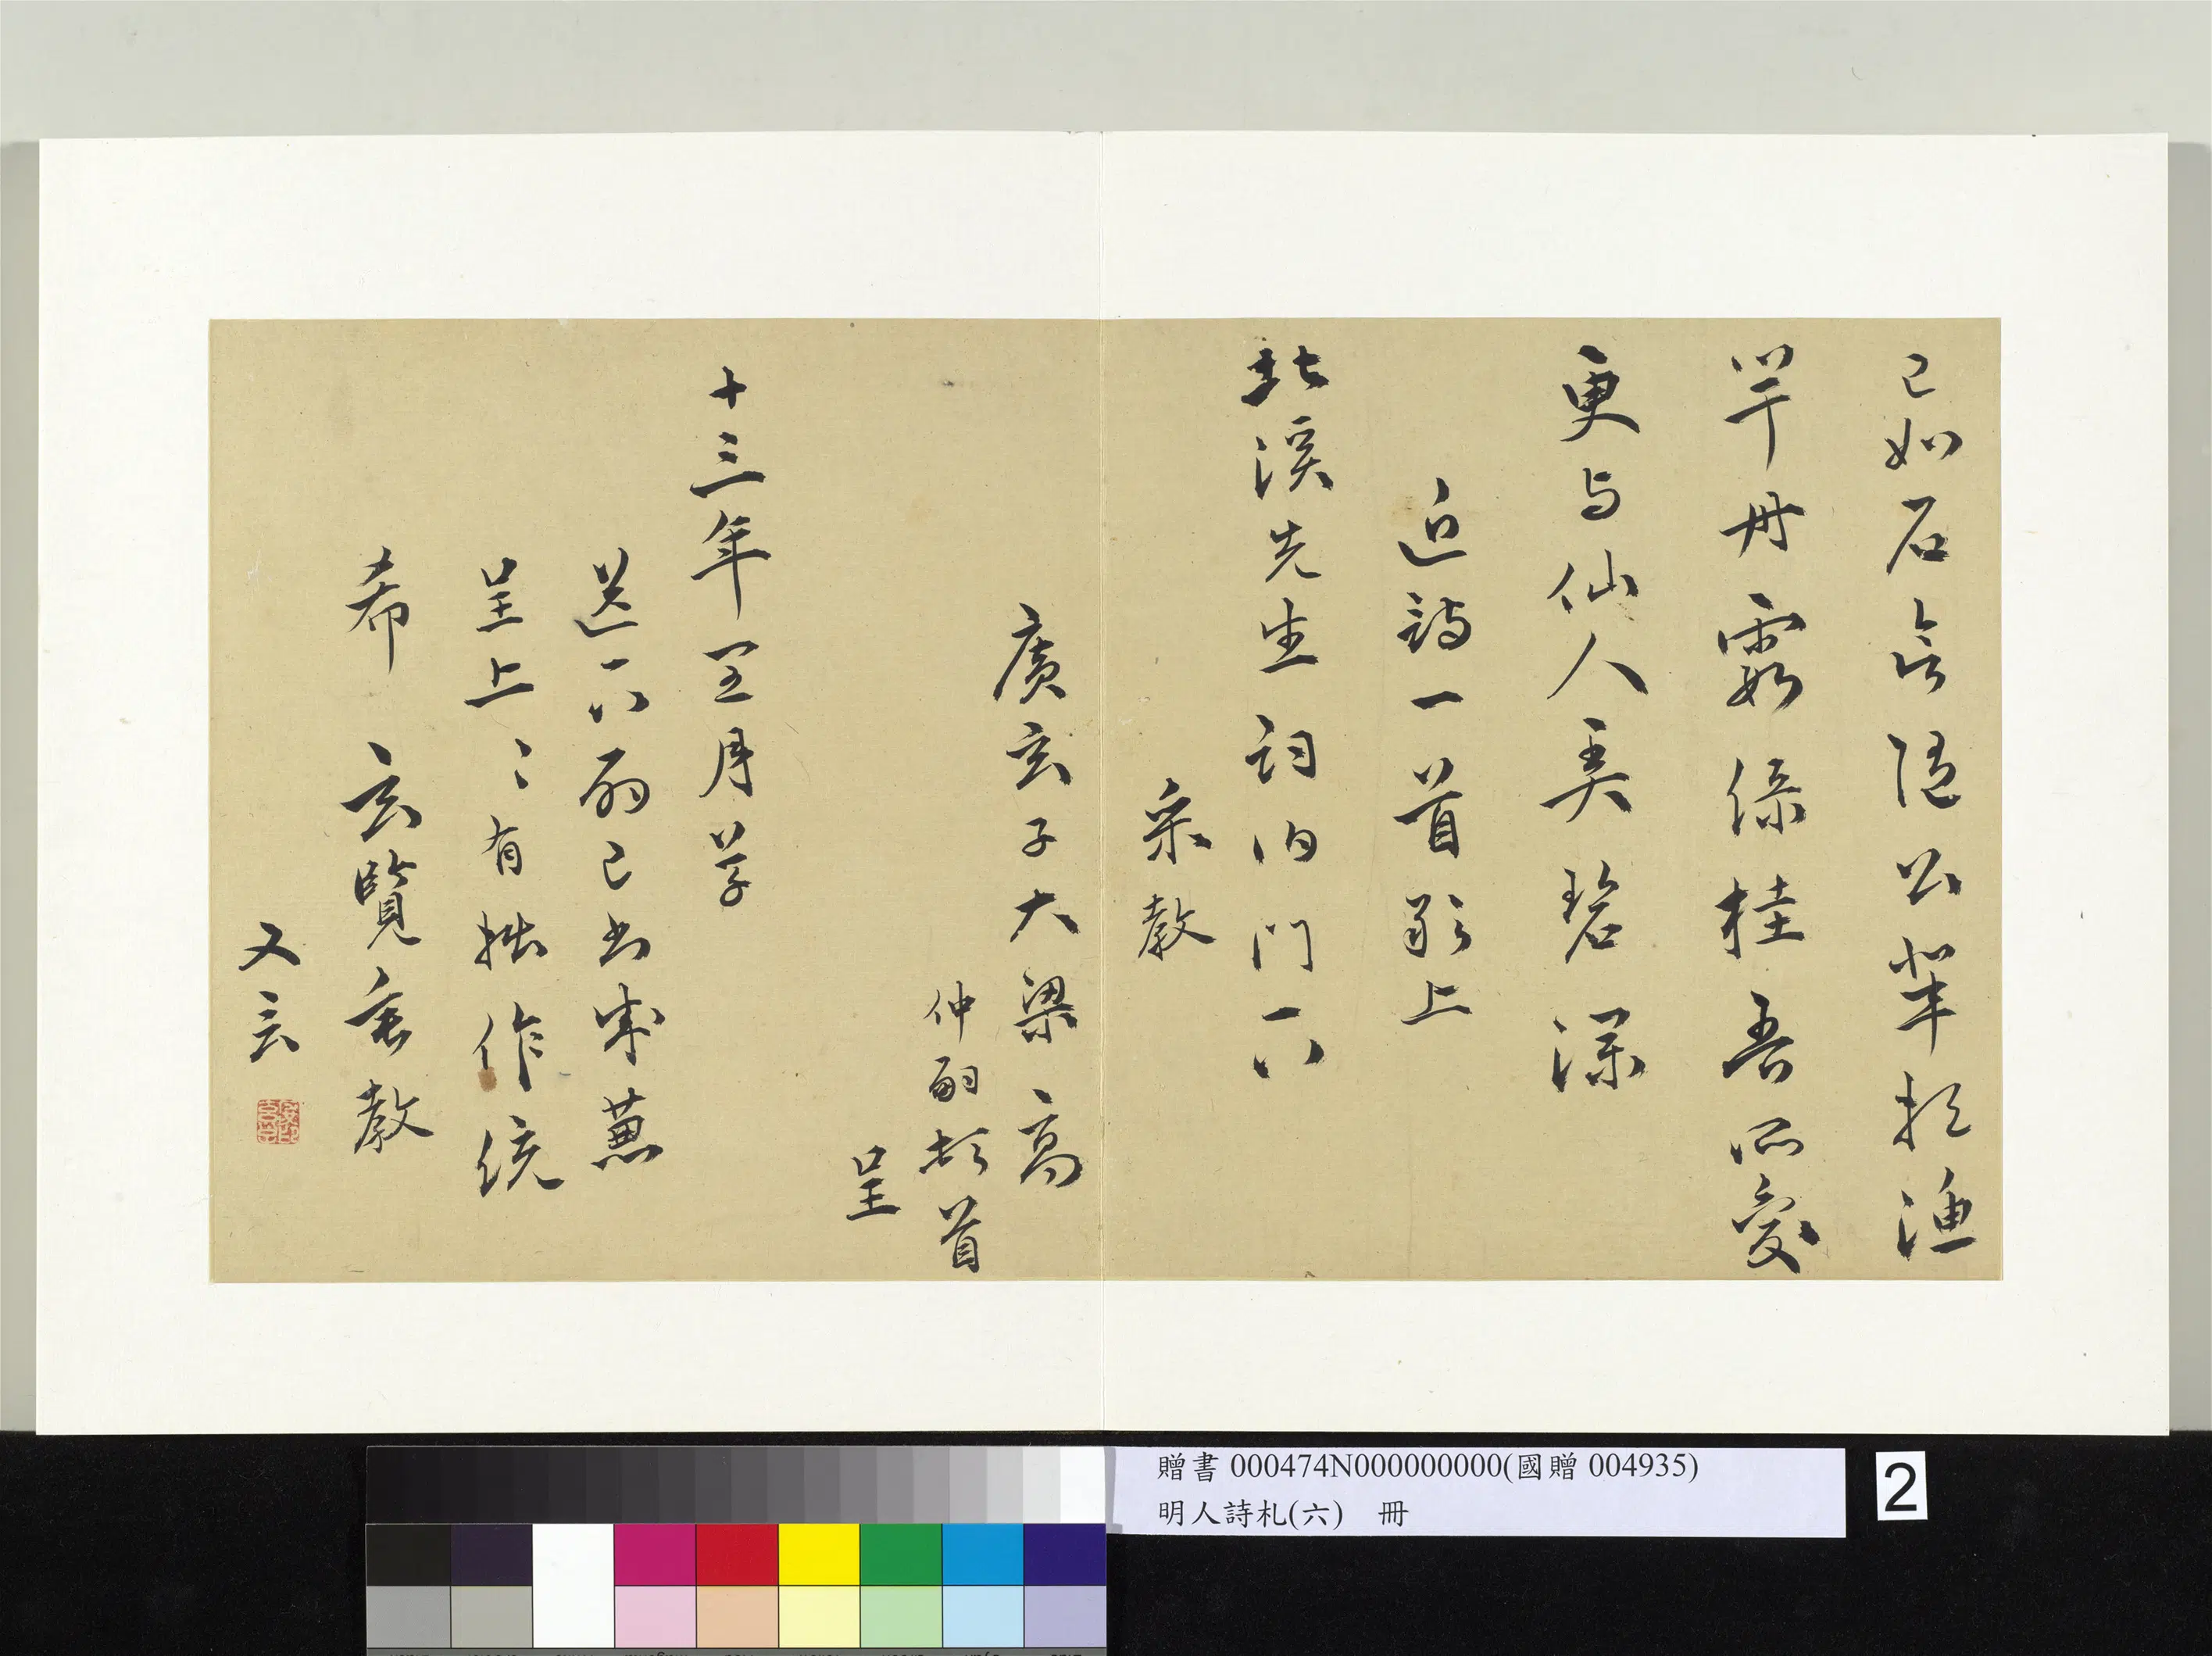 已如石言隱公輩投漁
竿丹霞綠桂吾所愛
更与仙人弄碧深
近詩一首敬上
北溪先生詞伯門下
采教
廣玄子大梁高
仲嗣頓首
呈
十三年五月草
送下兩已出來蕙
呈上〻有拙作統
希 玄覽垂教
又言
贈書 000474N000000000(國贈 004935)
明人詩札(六) 冊
2